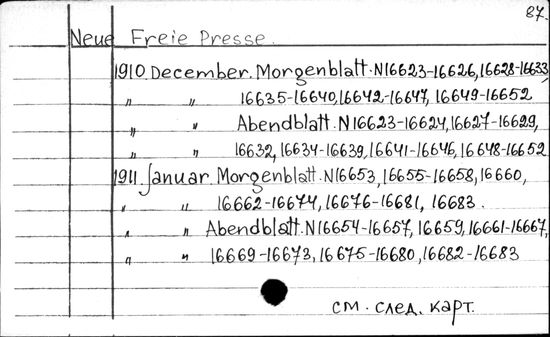 87.
Neue Freie Presse.
1910. December. Morgenblatt. N16623-16626, 16628-16633
" " 16635-16640, 16642-16647, 16649-16652
" " Abendblatt. N16623-16624, 16627-16629,
" " 16632, 16634-16639, 16641-16646, 16648-16652
1911. Januar. Morgenblatt. N16653, 16655-16658, 16660,
" " 16662-16674, 16676-16681, 16683.
" " Abendblatt. N16654-16657, 16659, 16661-16667,
" " 16669-16673, 16675-16680, 16682-16683
см. след. карт.